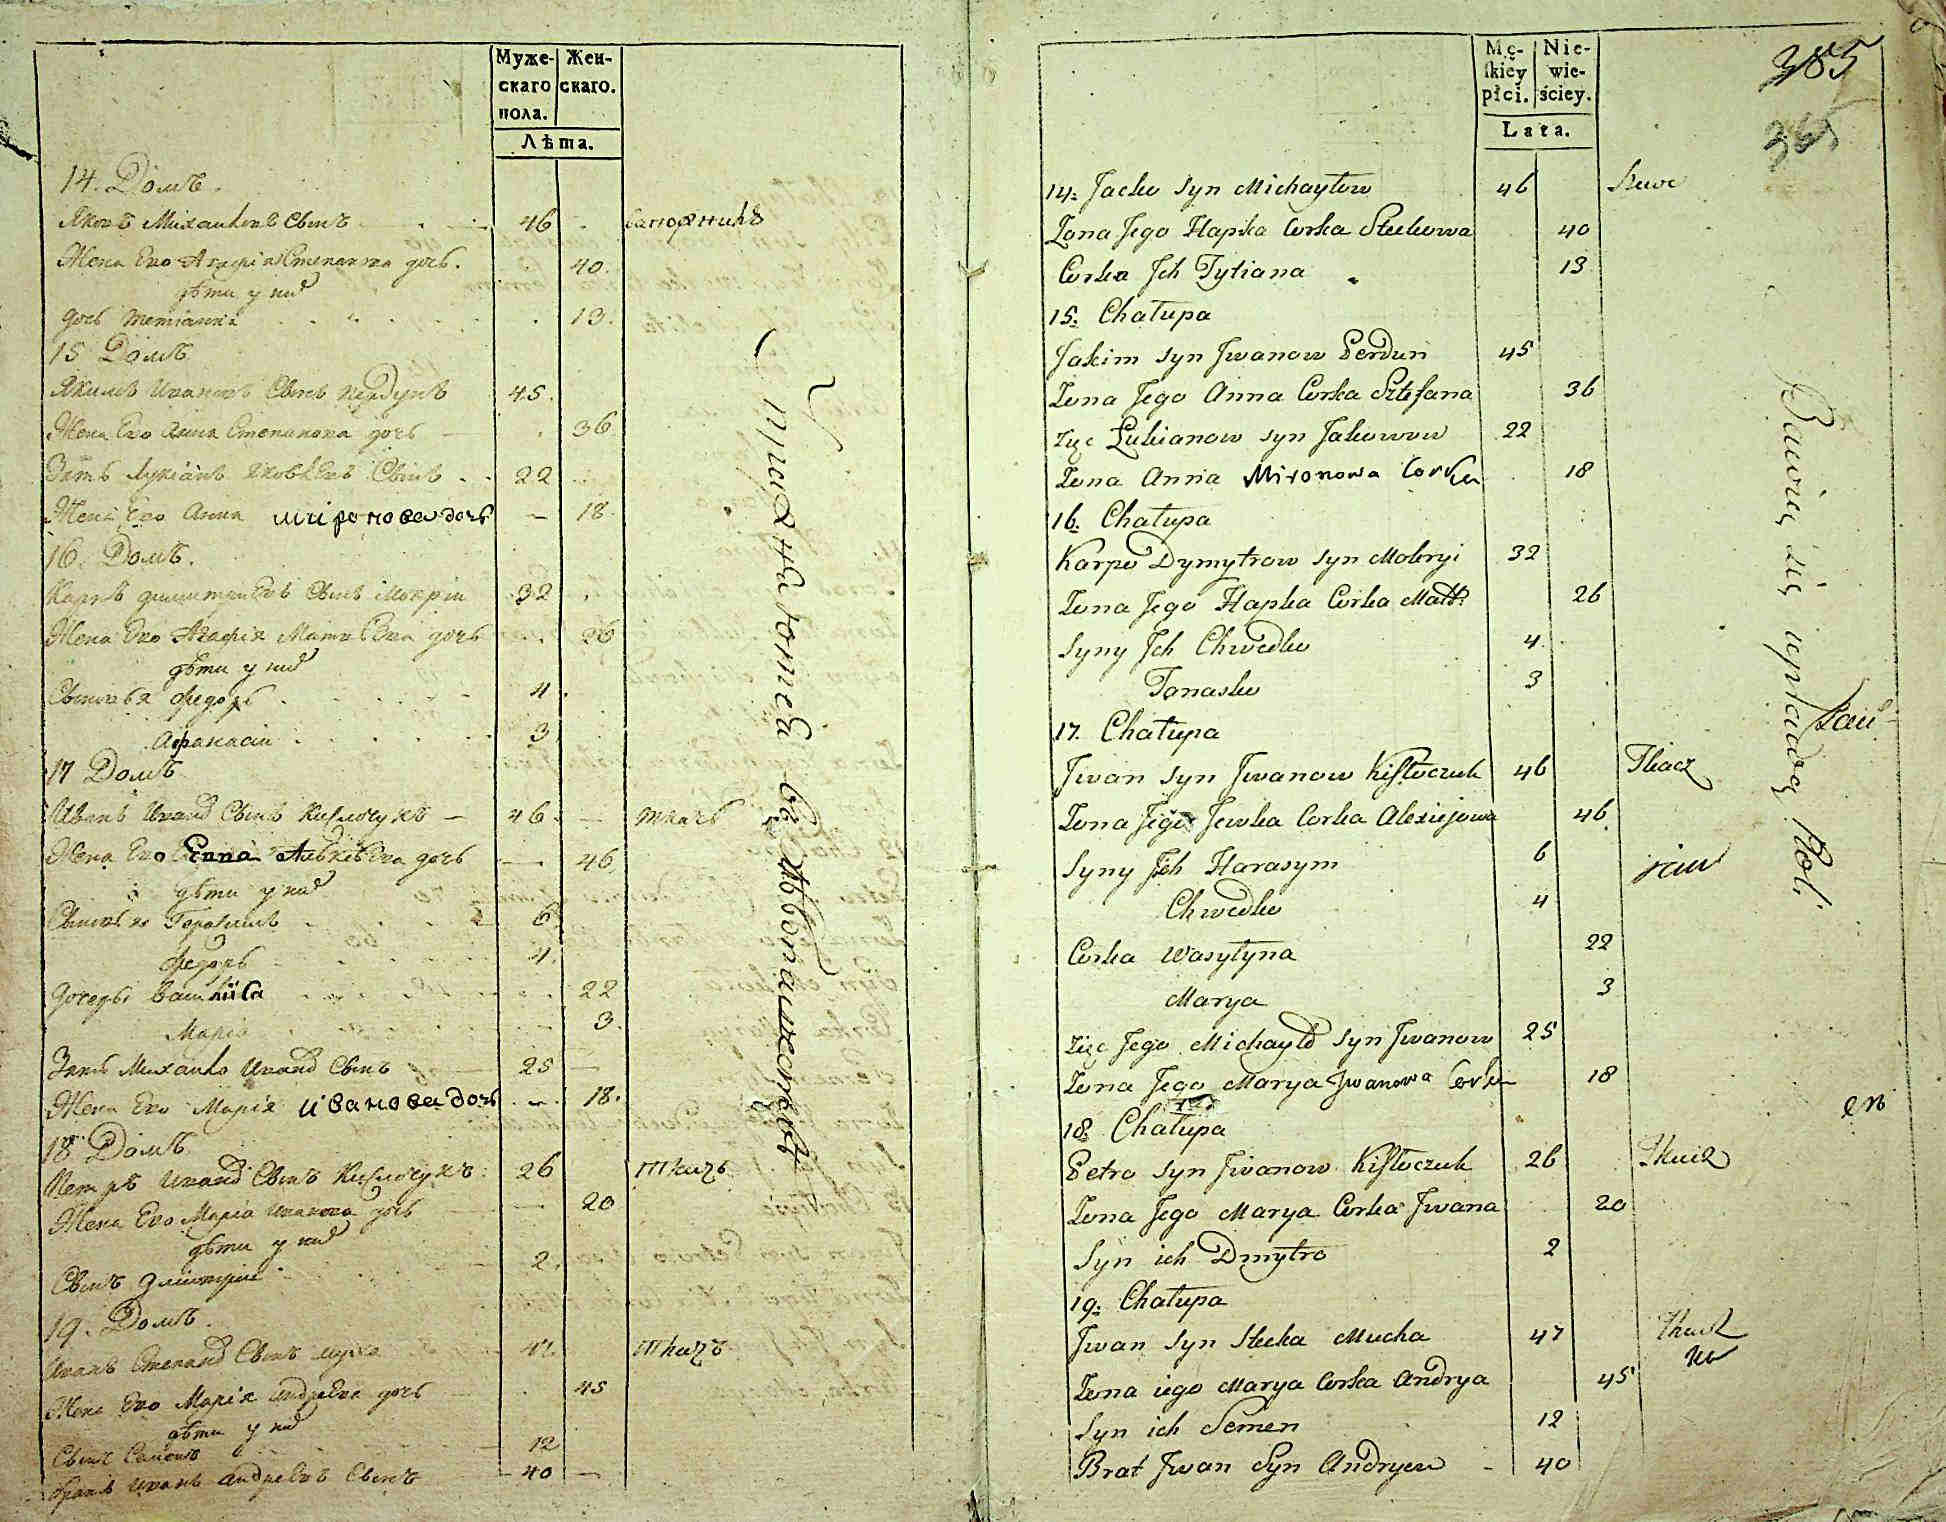 Муже-
скаго
пола.
Жен-
скаго.
Лѣта.
14. Домъ.
Яковъ Михаиловъ Сынъ 46 сапожникъ
Жена Его Агафія Степанова дочь. 40.
дѣти у них
дочь Тетіанна 13.
15 Домъ
Якимъ Иvановъ Сынъ Пердунъ 45.
Жена Его Анна Степанова дочь 36
Зять Лукіанъ Яковлевъ Сынъ 22
Жена Его Анна миронова дочь 18.
16. Домъ.
Карпъ Димитриевъ Сынъ Мокрій 32
Жена Его Агафія Матвѣева дочь 26
дѣти у них
Сыновья Федоръ 4.
Афанасій 3.
17 Домъ
Иванъ Иванов Сынъ Кислочукъ 46. ткачъ
Жена Его Евва дочь 46
дѣти у них
Сыновья Герасимъ 6.
Федоръ 4.
дочеры Василиса 22
Марія 3.
Зять Михайло Иванов Сынъ 25
Жена Его Марія иванова дочь 18.
18 Домъ
Петръ Иванов Сынъ Кислочукъ 26 ткачъ
Жена Его Марія Иванова дочь 20
дѣти у них
Сынъ Дмитрій 2.
19. Домъ.
Иванъ Степанов Сынъ Муха 47 ткачъ
Жена Его Марія Андреева дочь 45
дѣти у них
Сынъ Семенъ 12
братъ Иванъ Андреевъ Сынъ 40
упражняются в хлѣбопашествѣ
Mę-
skiey
płci.
Nie-
wie-
ściey.
Lata.
385
365
14. Jacko Syn Michayłow 46 Szewc
Zona Jego Hapka Corka Steckowa 40
Corka Jch Tytiana 13
15. Chałupa
Jakim Syn Jwanow Perdun 45
Zona Jego Anna Corka Sztefana 36
Zięc Łukianow Syn Jakowow 22
Zona Anna Mironowa Corka 18
16. Chałupa
Karpo Dymytrow Syn Mokryi 32
Zona Jego Hapka Corka Matt: 26
Syny Jch Chwedko 4
Tanasko 3
17. Chałupa
Jwan Syn Jwanow Kisłoczuk 46 Tkacz
Zona Jego Jewka Corka Alexiejowa 46
Syny Jch Harasym 6
Chwedko 4
Corka Wasyłyna 22
Marya 3
Zięc Jego Michayło Syn Jwanow 25
Zona Jego Marya Jwanowa Corka 18
18. Chałupa
Petro Syn Jwanow Kisłoczuk 26 Tkacz
Zona Jego Marya Corka Jwana 20
Syn ich Dmytro 2
19. Chałupa
Jwan Syn Stecka Mucha 47 Tkacz
Zona iego Marya Corka Andrya 45
Syn ich Semen 12
Brat Jwan Syn Andryew 40
Bawią się uprawą Roli